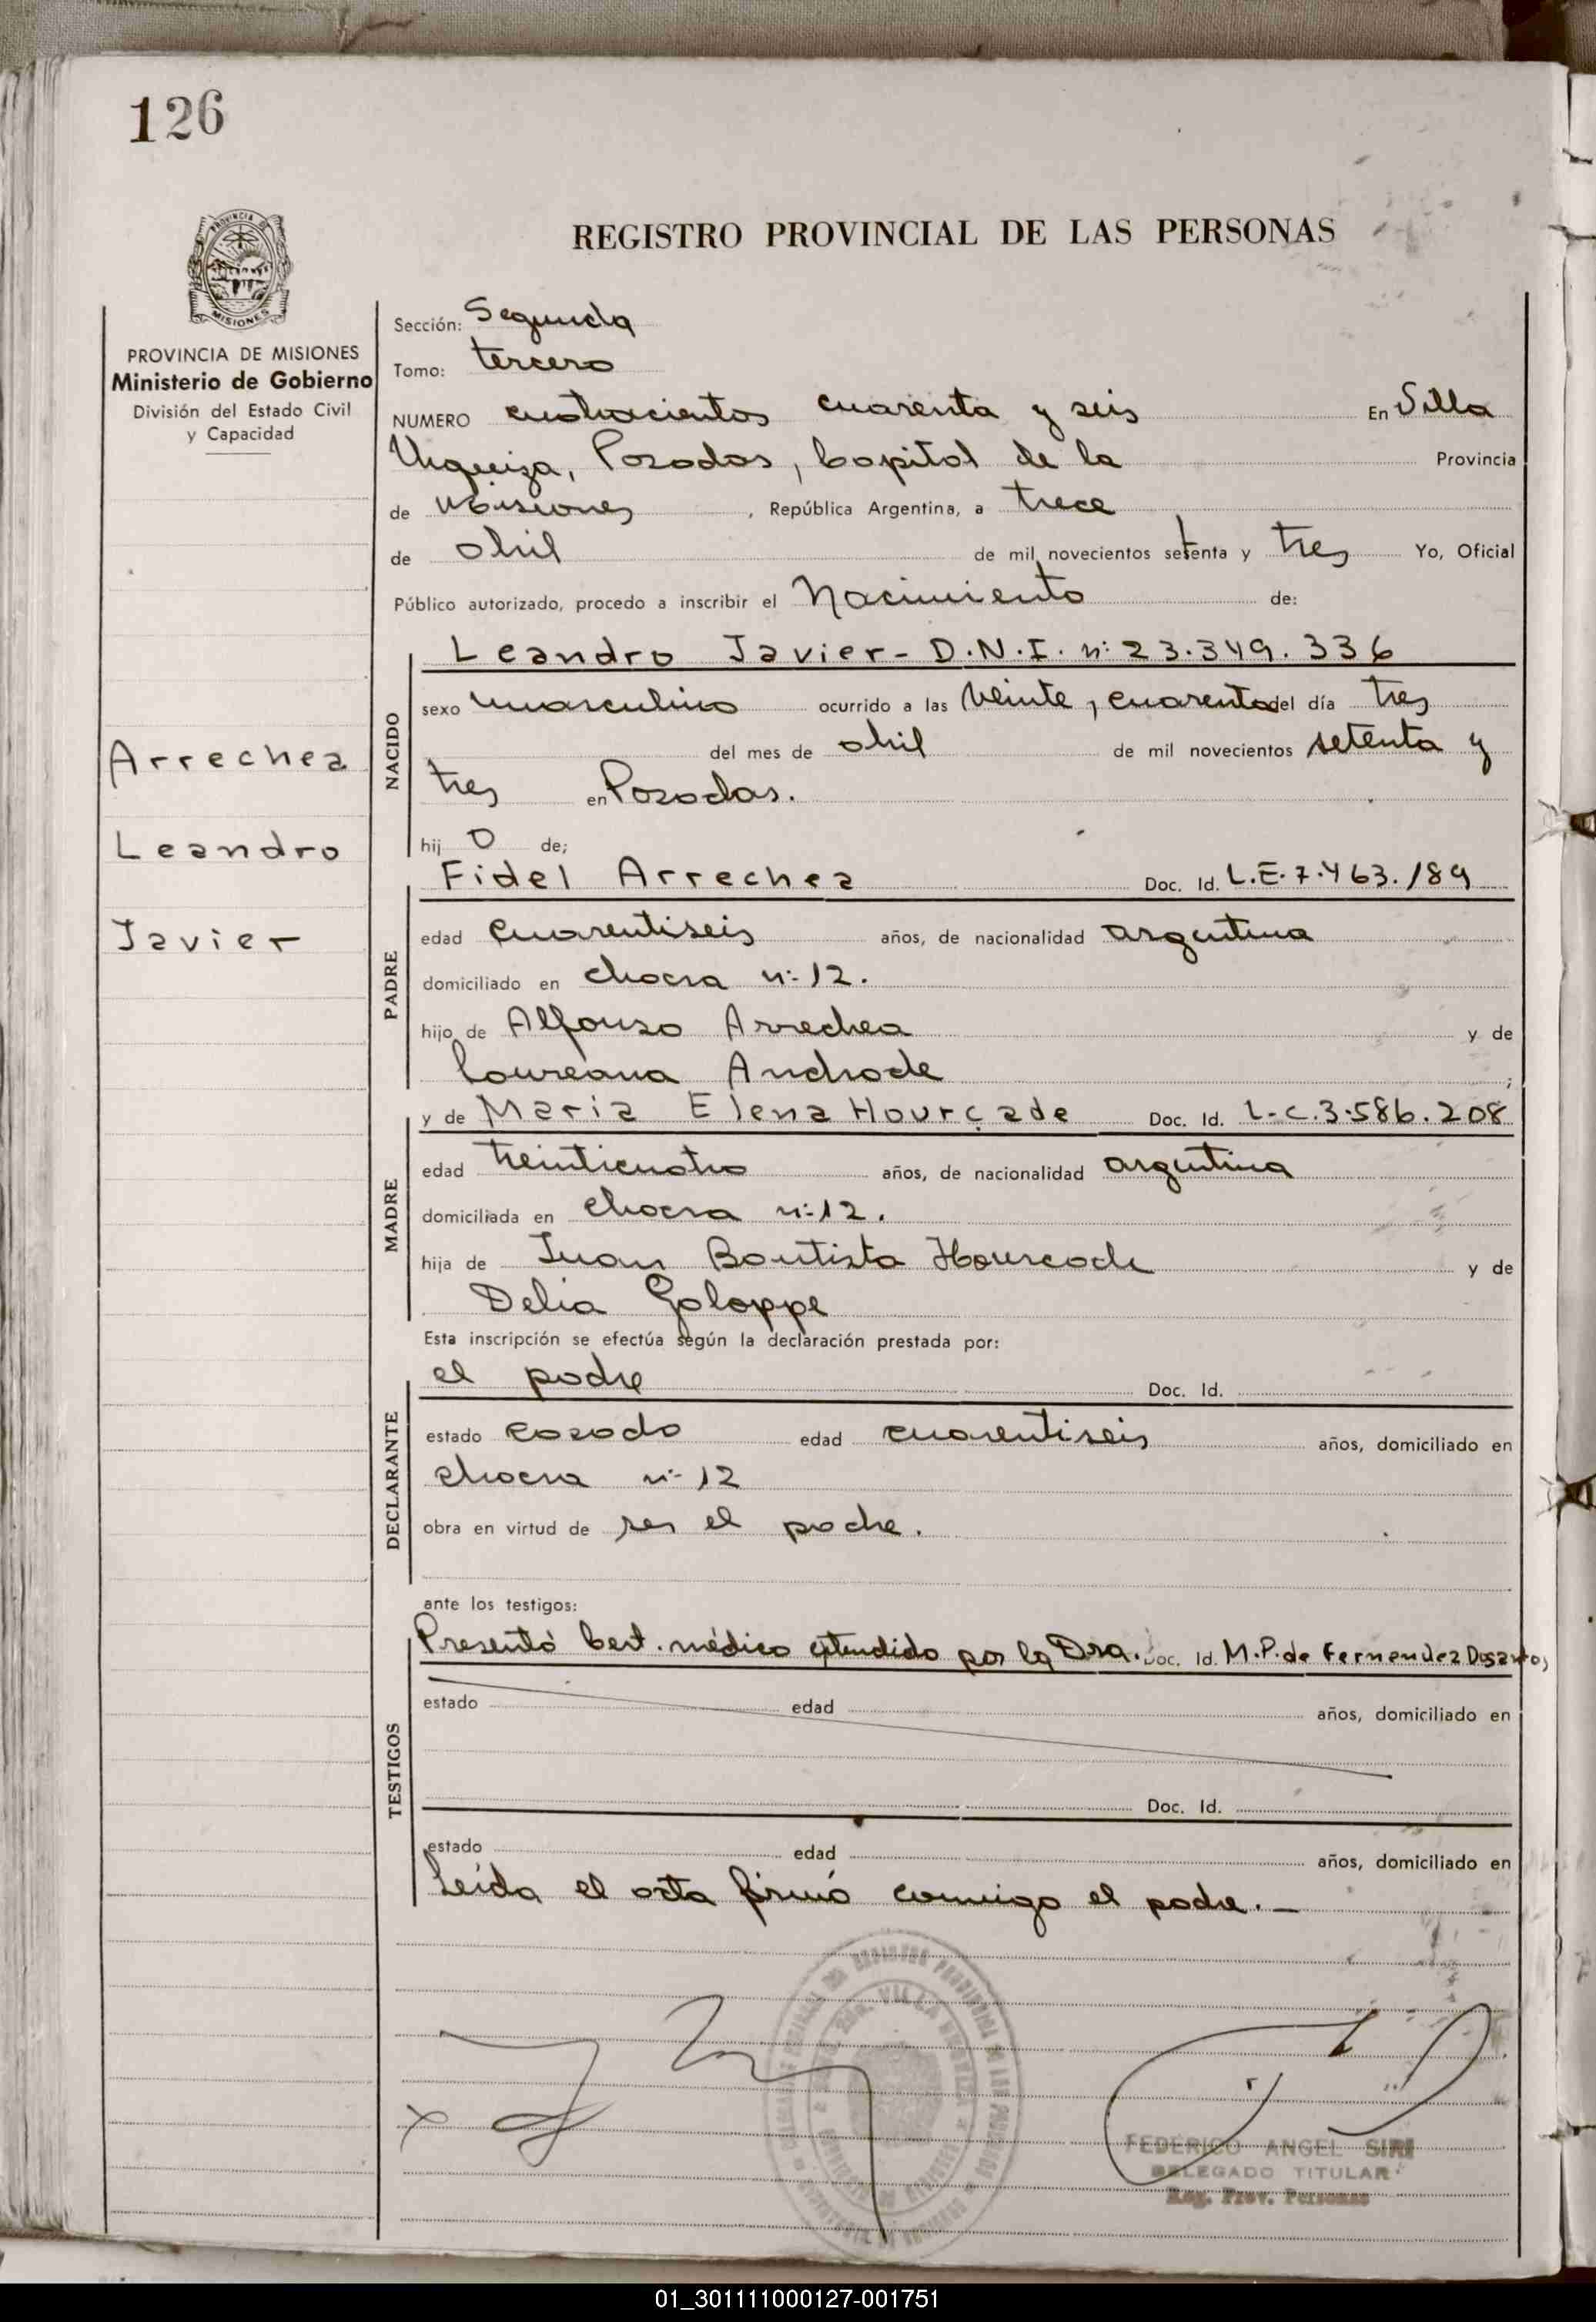 126
PROVINCIA DE
MISIONES
REGISTRO PROVINCIAL DE LAS PERSONAS
PROVINCIA DE MISIONES
Ministerio de Gobierno
División del Estado Civil
y Capacidad
Arrechea
Leandro
Javier
Sección: Segunda
Tomo: tercero
NUMERO cuatrocientos cuarenta y seis En Villa
Urquiza, Posadas, Capital de la Provincia
de Misiones, República Argentina, a trece
de abril de mil novecientos setenta y tres Yo, Oficial
Público autorizado, procedo a inscribir el Nacimiento de:
Leandro Javier - D.N.I. n: 23.349.336
NACIDO
sexo masculino ocurrido a las veinte, cuarenta del día tres
del mes de abril de mil novecientos setenta y
tres en Posadas.
hij o de;
Fidel Arrechea Doc. Id. L.E. 7.463.189
PADRE
edad cuarentiseis años, de nacionalidad argentina
domiciliado en chacra n: 12.
hijo de Alfonso Arrechea y de
Laureana Andrade ;
y de Maria Elena Hourcade Doc. Id. L.C. 3.586.208
MADRE
edad treinticuatro años, de nacionalidad argentina
domiciliada en chacra n: 12.
hija de Juan Bautista Hourcade y de
Delia Galoppe
Esta inscripción se efectúa según la declaración prestada por:
el padre Doc. Id.
DECLARANTE
estado casado edad cuarentiseis años, domiciliado en
chacra n: 12
obra en virtud de ser el padre.
ante los testigos:
Presentó Cert. médico extendido por la Dra. Doc. Id. M.P. de Fernendez Dosantos
TESTIGOS
estado edad años, domiciliado en
Doc. Id.
estado edad años, domiciliado en
Leída el acta firmó conmigo el padre.-
FEDERICO ANGEL SIRI
DELEGADO TITULAR
Reg. Prov. Personas
01_301111000127-001751